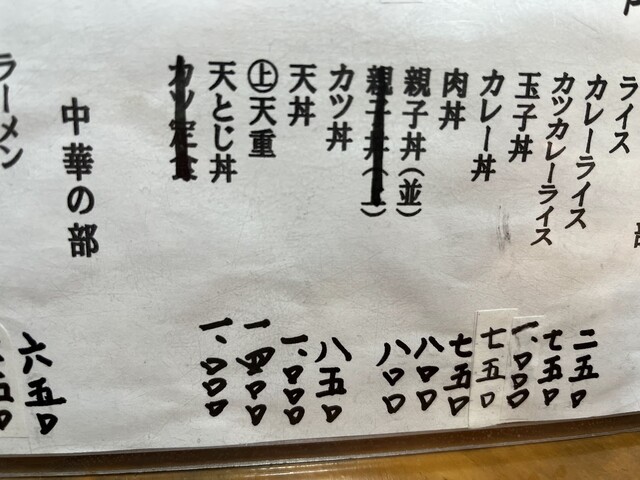 ライス 二五〇
カレーライス 七五〇
カツカレーライス 一、〇〇〇
玉子丼 七五〇
カレー丼 七五〇
肉丼 八〇〇
親子丼(並) 八〇〇
親子丼(上)
カツ丼 八五〇
天丼 一、〇〇〇
㊤天重 一四〇〇
天とじ丼 一、〇〇〇
カツ定食
中華の部
ラーメン 六五〇